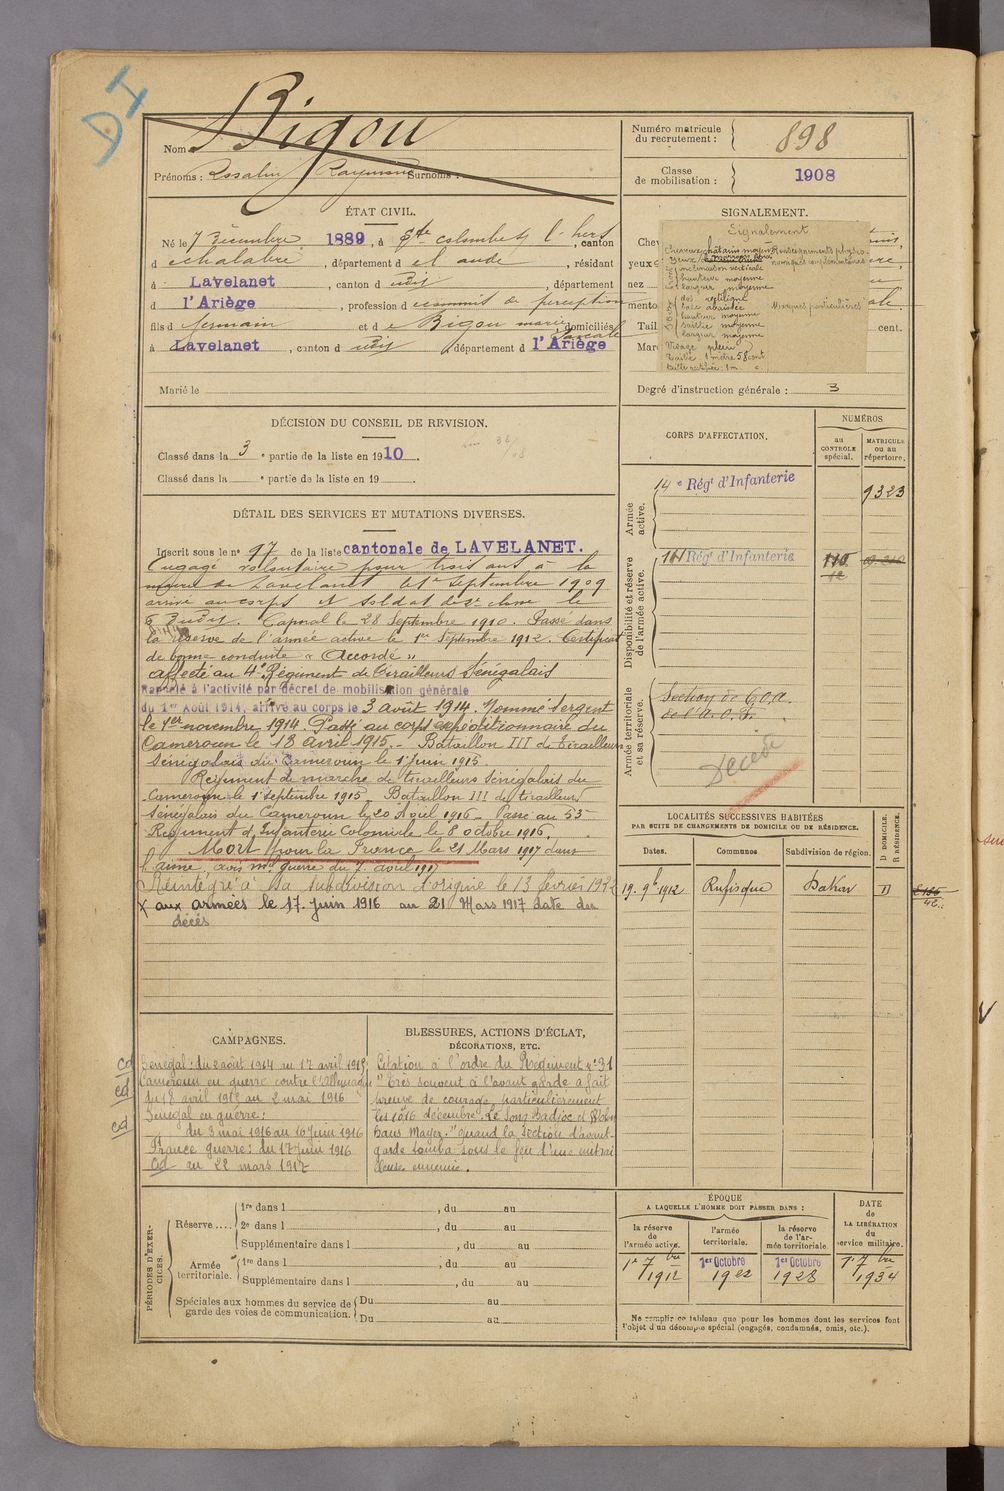 DI
Nom Bigou
Prénoms : Rosalin Raymond Surnoms :
Numéro matricule du recrutement : 898
Classe de mobilisation : 1908
ÉTAT CIVIL.
Né le 7 Décembre 1889, à Ste colombe s/ l'hers, canton
d echalabre, département d el aude, résidant
à Lavelanet, canton d udit, département
d l'Ariège, profession d commis de perception
fils d Germain et d e Bigou marie Pascale, domiciliés
à Lavelanet, canton d udit, département d l'Ariège
Marié le
SIGNALEMENT.
Signalement
Cheveux châtain moyen Renseignements physio-
Yeux nomiques complémentaires
inclinaison verticale
hauteur moyenne
largeur moyenne
dos rectiligne Marques particulières
base abaissée
hauteur moyenne
saillie moyenne
largeur moyenne
Visage plein
Taille 1 mètre 58 cent
Taille rectifiée : 1 m. c.
Degré d'instruction générale : 3
DÉCISION DU CONSEIL DE REVISION.
Classé dans la 3e partie de la liste en 1910.
Classé dans la e partie de la liste en 19 .
CORPS D'AFFECTATION.
NUMÉROS
au CONTROLE spécial.
MATRICULE ou au répertoire.
Armée active.
14e Régt d'Infanterie 9323
Disponibilité et réserve de l'armée active.
Régt d'Infanterie
Armée territoriale et sa réserve.
Section de C.O.A.
de l'A.O.F.
Décédé
DÉTAIL DES SERVICES ET MUTATIONS DIVERSES.
Inscrit sous le n° 97 de la liste cantonale de LAVELANET.
Engagé volontaire pour trois ans à la
mairie de Lavelanet le 1er Septembre 1909
arrivé au corps et soldat de 2e classe le
dit. Caporal le 28 Septembre 1910. Passé dans
la réserve de l'armée active le 1er Septembre 1912. Certificat
de bonne conduite "Accordé"
affecté au 4e Régiment de Tirailleurs Sénégalais
Rappelé à l'activité par décret de mobilisation générale
du 1er Août 1914, arrivé au corps le 3 août 1914. Nommé Sergent
le 1er novembre 1914. Passé au corps expéditionnaire du
Cameroun le 18 avril 1915. - Bataillon III de Tirailleurs
Sénégalais du Cameroun le 1er juin 1915.
Régiment de marche de tirailleurs Sénégalais du
Cameroun le 1er septembre 1915 Bataillon III de tirailleurs
Sénégalais du Cameroun le 20 Avril 1916 - Passé au 53e
Régiment d'Infanterie Coloniale le 8 octobre 1916.
Mort pour la France le 21 Mars 1917 dans
l'aisne, avis ml guerre du 7 avril 1917
Réintégré à sa subdivision d'origine le 13 février 1922
x aux armées le 17 Juin 1916 au 21 Mars 1917 date du
décès
LOCALITÉS SUCCESSIVES HABITÉES
PAR SUITE DE CHANGEMENTS DE DOMICILE OU DE RÉSIDENCE.
Dates. Communes. Subdivision de région. D DOMICILE. R RÉSIDENCE.
19. 9b 1912 Rufisque Dakar D
CAMPAGNES.
Sénégal : du 2 août 1914 au 17 avril 1915
Cameroun en guerre contre l'Allemagne
du 18 avril 1915 au 2 mai 1916
Sénégal en guerre :
du 3 mai 1916 au 16 juin 1916
France guerre : du 17 juin 1916
cd au 22 mars 1917
BLESSURES, ACTIONS D'ÉCLAT, DÉCORATIONS, ETC.
Citation à l'ordre du Régiment n° 31
"Très souvent à l'avant garde a fait
preuve de courage, particulièrement
quand la section d'avant-
garde tomba sous le feu d'une mitrail
leuse ennemie.
PÉRIODES D'EXERCICES.
Réserve .... 1re dans l , du au
2e dans l , du au
Supplémentaire dans l , du au
Armée territoriale. 1re dans l , du au
Supplémentaire dans l , du au
Spéciales aux hommes du service de garde des voies de communication. Du au
Du au
ÉPOQUE
A LAQUELLE L'HOMME DOIT PASSER DANS :
la réserve de l'armée active.
l'armée territoriale.
la réserve de l'armée territoriale.
DATE de LA LIBÉRATION du service militaire.
1er 7bre 1912
1er Octobre 1922
1er Octobre 1928
1er 7bre 1934
Ne remplir ce tableau que pour les hommes dont les services font
l'objet d'un décompte spécial (engagés, condamnés, omis, etc.).